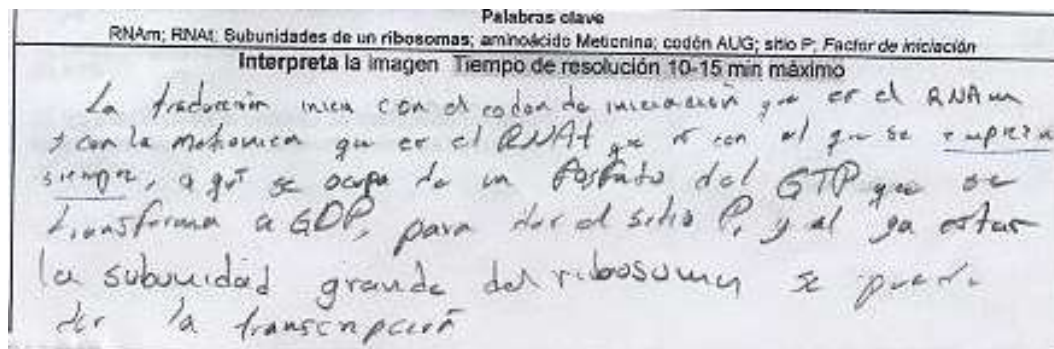 Palabras clave
RNAm; RNAt; Subunidades de un ribosomas; aminoácido Metionina; codón AUG; sitio P; Factor de iniciación
Interpreta la imagen Tiempo de resolución 10-15 min máximo
La traducción inicia con el codon de iniciación que es el RNAm
y con la metionica que es el RNAt que es con el que se empieza
siempre, aquí se ocupa de un fosfato del GTP que se
transforma a GDP, para dar el sitio P, y al ya estar
la subunidad grande del ribosoma se puede
dar la transcripción